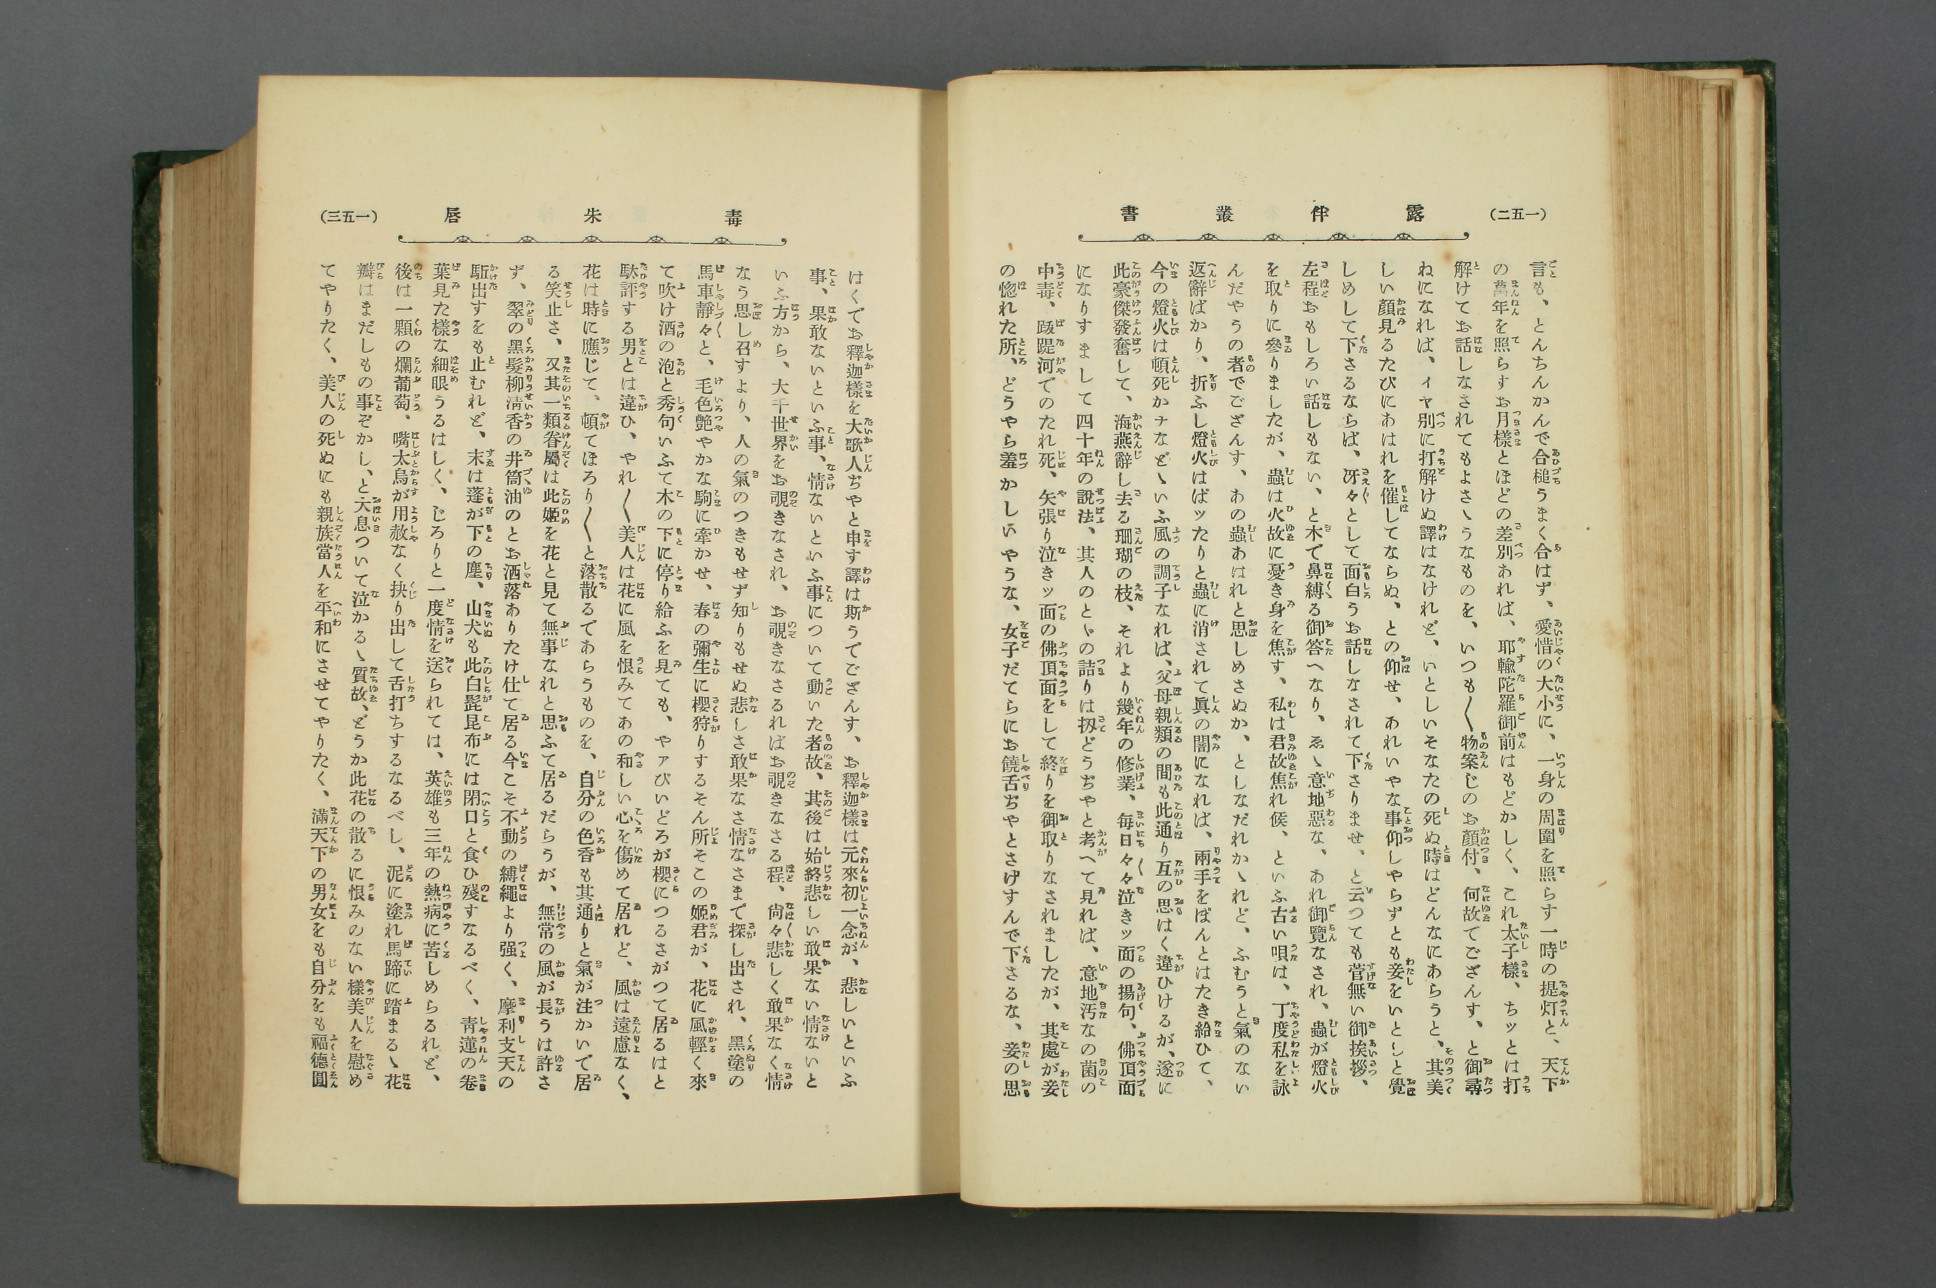 (一五二)
露伴叢書
言も、とんちんかんで合槌うまく合はず、愛惜の大小に、一身の周圍を照らす一時の提灯と、天下
の萬年を照らすお月樣とほどの差別あれば、耶輸陀羅御前はもどかしく、これ太子樣、ちッとは打
解けてお話しなされてもよさゝうなものを、いつも〱物案じのお顏付、何故でござんす、と御尋
ねになれば、イヤ別に打解けぬ譯はなけれど、いとしいそなたの死ぬ時はどんなにあらうと、其美
しい顏見るたびにあはれを催してならぬ、との仰せ、あれいやな事仰しやらずとも妾をいとしと覺
しめして下さるならば、冴々として面白うお話しなされて下さりませ、と云つても菅無い御挨拶、
左程おもしろい話しもない、と木で鼻縛る御答へなり、ゑゝ意地惡な、あれ御覽なされ、蟲が燈火
を取りに參りましたが、蟲は火故に憂き身を焦す、私は君故焦れ候、といふ古い唄は、丁度私を詠
んだやうの者でござんす、あの蟲あはれと思しめさぬか、としなだれかゝれど、ふむうと氣のない
返辭ばかり、折ふし燈火はばッたりと蟲に消されて眞の闇になれば、兩手をぽんとはたき給ひて、
今の燈火は頓死かナなどゝいふ風の調子なれば、父母親類の間も此通り互の思はく違ひけるが、遂に
此豪傑發奮して、海燕辭し去る珊瑚の枝、それより幾年の修業、毎日々々泣きッ面の揚句、佛頂面
になりすまして四十年の說法、其人のとゞの詰りは扨どうぢやと考へて見れば、意地汚なの菌の
中毒、跋蹉河でのたれ死、矢張り泣きッ面の佛頂面をして終りを御取りなされましたが、其處が妾
の惚れた所、どうやら羞かしいやうな、女子だてらにお饒舌ぢやとさげすんで下さるな、妾の思
(一五三)
毒朱唇
はくでお釋迦樣を大歌人ぢやと申す譯は斯うでござんす、お釋迦樣は元來初一念が、悲しいといふ
事、果敢ないといふ事、情ないといふ事について動いた者故、其後は始終悲しい敢果ない情ないと
いふ方から、大千世界をお覗きなされ、お覗きなさるればお覗きなさる程、尙々悲しく敢果なく情
なう思し召すより、人の氣のつきもせず知りもせぬ悲しさ敢果なさ情なさまで探し出され、黑塗の
馬車靜々と、毛色艷やかな駒に牽かせ、春の彌生に櫻狩りするそん所そこの姬君が、花に風輕く來
て吹け酒の泡と秀句いふて木の下に停り給ふを見ても、やァびいどろが櫻につるさがつて居るはと
駄評する男とは違ひ、やれ〱美人は花に風を恨みてあの和しい心を傷めて居れど、風は遠慮なく、
花は時に應じて、頓てほろり〱と落散るであらうものを、自分の色香も其通りと氣が注かいで居
る笑止さ、又其一類眷屬は此姬を花と見て無事なれと思ふて居るだらうが、無常の風が長うは許さ
ず、翠の黑髮柳淸香の井筒油のとお洒落ありたけ仕て居る今こそ不動の縛繩より强く、摩利支天の
駈出すをも止むれど、末は蓬が下の塵、山犬も此白髭昆布には閉口と食ひ殘すなるべく、靑蓮の卷
葉見た樣な細眼うるはしく、じろりと一度情を送られては、英雄も三年の熱病に苦しめらるれど、
後は一顆の爛葡萄、嘴太烏が用赦なく抉り出して舌打ちするなるべし、泥に塗れ馬蹄に踏まるゝ花
瓣はまだしもの事ぞかし、と大息ついて泣かるゝ質故、どうか此花の散るに恨みのない樣美人を慰め
てやりたく、美人の死ぬにも親族當人を平和にさせてやりたく、滿天下の男女をも自分をも福德圓